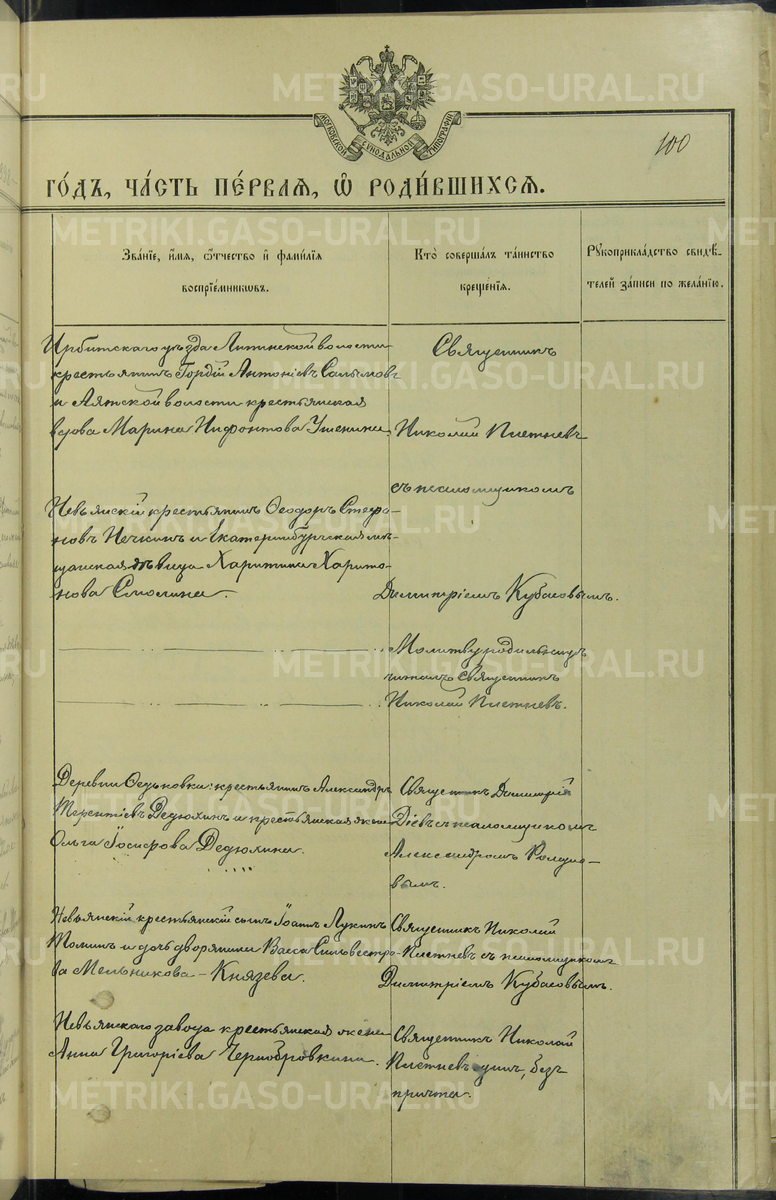 МОСКОВСКОЙ СѴНОДАЛЬНОЙ ТИПОГРАФІИ
100
ГО́ДЪ, ЧА́СТЬ ПЕ́РВАЯ, Ѡ҆ РОДИ́ВШИХСЯ.
Зва́ніе, и҆́мя, ѻ҆́тчество и҆ фами́лія
воспріе́мниковъ.
Кто̀ соверша́лъ та́инство
креще́нія.
Рукоприкла́дство свидѣ́-
телей за́писи по жела́нію.
Ирбитскаго уѣзда Липинской волости
крестьянинъ Гордій Антоніевъ
и Аятской волости крестьянская
вдова Марина Нифонтова Ушенина.
Священникъ
Николай Плетневъ
съ псаломщикомъ
Димитріемъ Кубасовымъ.
Невьянскій крестьянинъ Ѳеодоръ Стефа-
новъ Нечкинъ и Екатеринбургская мѣ-
щанская дѣвица Харитина Харито-
нова Смолина.
Молитву родильницѣ
читалъ священникъ
Николай Плетневъ.
Деревни Ѳедьковки: крестьянинъ Александръ
Терентіевъ Дедюхинъ и крестьянская жена
Ольга Іосифова Дедюхина.
Священникъ Димитрій
Діевъ съ псаломщикомъ
Александромъ
вымъ.
Невьянскій крестьянскій сынъ Іоаннъ Лукинъ
Толинъ и дочь дворянина Васса Сильвестро-
ва Мельникова-Князева.
Священникъ Николай
Плетневъ съ псаломщикомъ
Димитріемъ Кубасовымъ.
Невьянскаго завода крестьянская жена
Анна Григоріева Чернобровкина.
Священникъ Николай
Плетневъ одинъ, безъ
причта.
METRIKI.GASO-URAL.RU